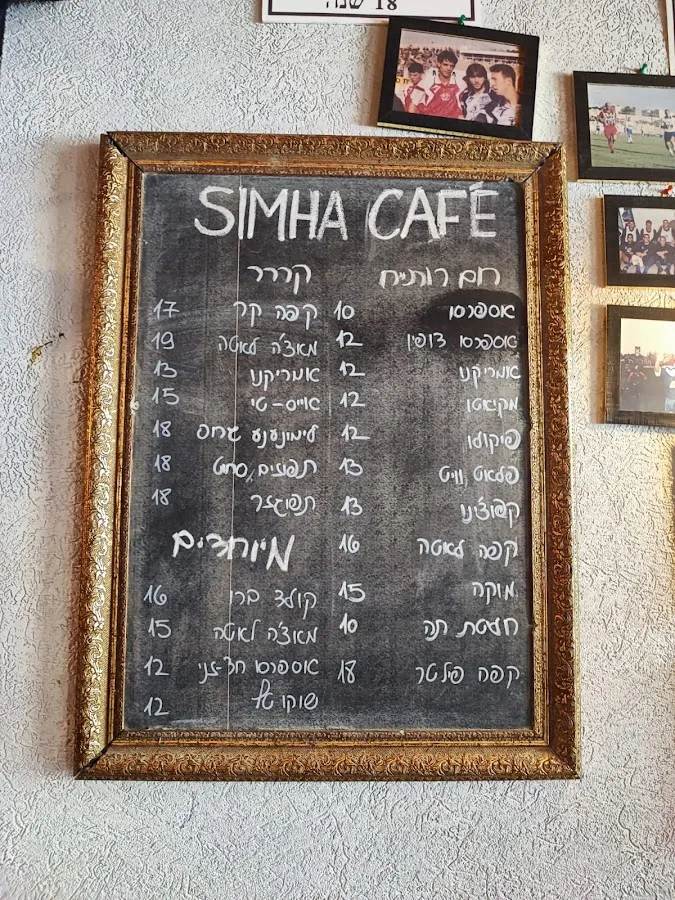 18 שנה
SIMHA CAFÉ
חם רותיח
אספרסו 10
אספרסו דופיו 12
אמריקנו 12
מקיאטו 12
פיקולו 12
פלאט וויט 13
קפוצ'ינו 13
קפה לאטה 16
מוקה 15
חליטת תה 10
קפה פילטר 18
קררר
קפה קר 17
מאצ'ה לאטה 19
אמריקנו 13
אייס-טי 15
לימונענע גרוס 18
תפוזים סחוט 18
תפוגזר 18
מיוחדים
קולד ברו 16
מאצ'ה לאטה 15
אספרסו חד-זני 12
שוקו 12